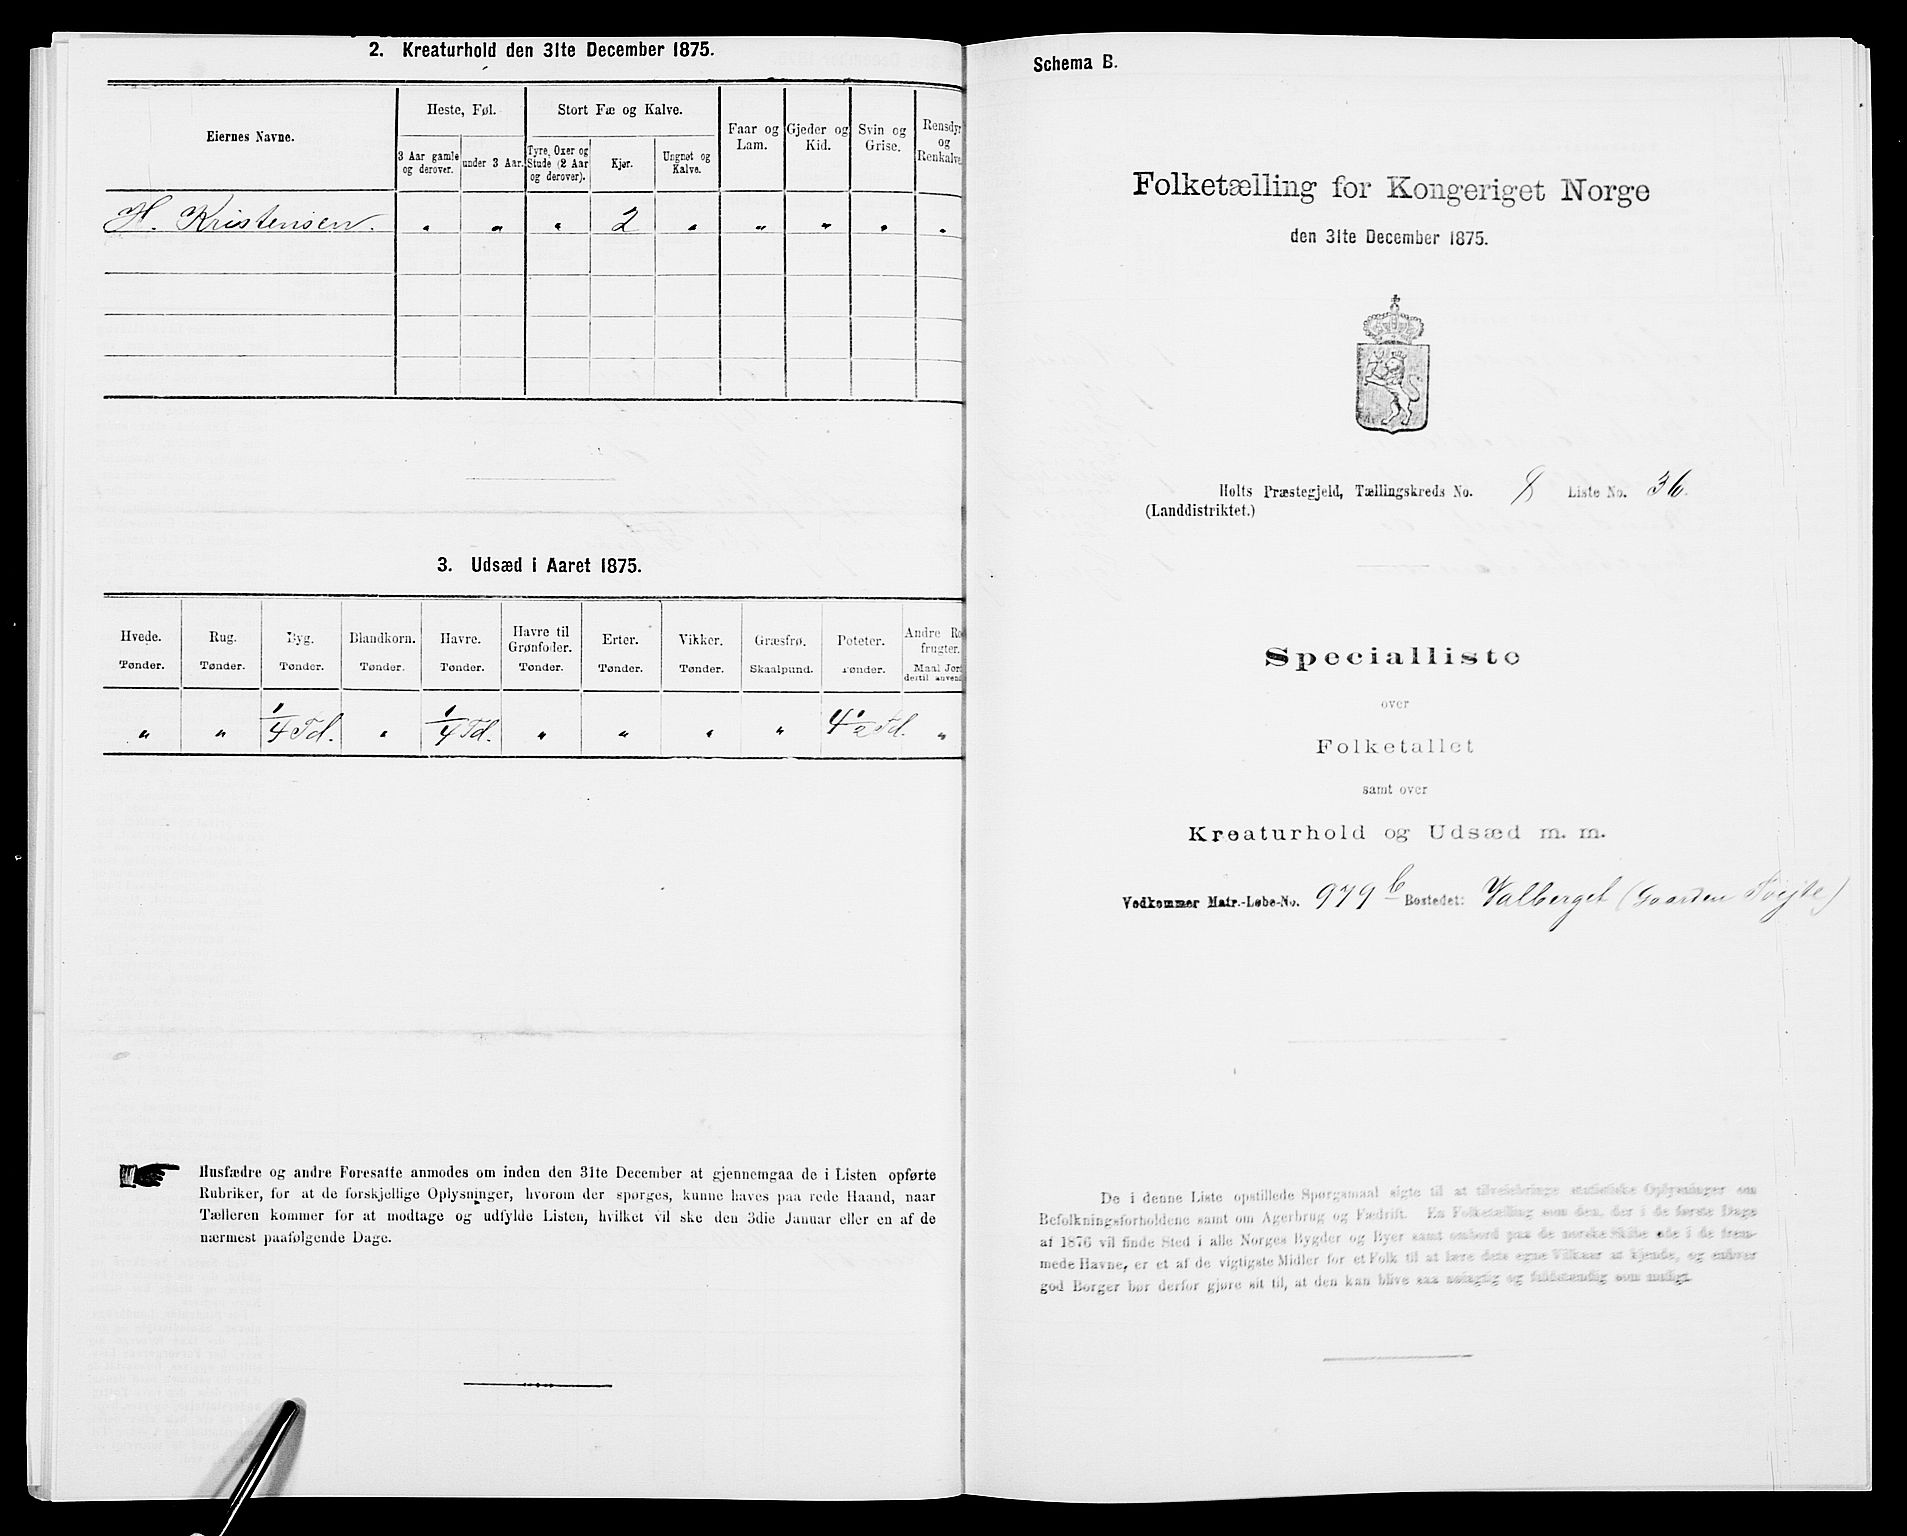 2. Kreaturhold den 31te December 1875.
Eiernes Navne.
Heste, Føl.
Stort Fæ og Kalve.
Faar og Lam.
Gjeder og Kid.
Svin og Grise.
Rensdyr og Renkalve.
3 Aar gamle og derover.
under 3 Aar.
Tyre, Oxer og Stude (2 Aar og derover).
Kjør.
Ungnøt og Kalve.
H. Kristensen. " " " 2 " " " " "
3. Udsæd i Aaret 1875.
Hvede. Rug. Byg. Blandkorn. Havre. Havre til Grønfoder. Erter. Vikker. Græsfrø. Poteter. Andre Ro frugter.
Tønder. Tønder. Tønder. Tønder. Tønder. Tønder. Tønder. Tønder. Skaalpund. Tønder. Maal Jor dertil anvend
" " 1/4 Td. " 1/4 Td. " " " " 4 1/2 Td. "
Husfædre og andre Foresatte anmodes om inden den 31te December at gjennemgaa de i Listen opførte
Rubriker, for at de forskjellige Oplysninger, hvorom der spørges, kunne haves paa rede Haand, naar
Tælleren kommer for at modtage og udfylde Listen, hvilket vil ske den 3die Januar eller en af de
nærmest paafølgende Dage.
Schema B.
Folketælling for Kongeriget Norge
den 31te December 1875.
Holts Præstegjeld, Tællingskreds No. 8 Liste No. 36.
(Landdistriktet.)
Specialliste
over
Folketallet
samt over
Kreaturhold og Udsæd m. m.
Vedkommer Matr.-Løbe-No. 979 b Bostedet: Valberget (Gaarden Tvejte)
De i denne Liste opstillede Spørgsmaal sigte til at tilveiebringe statistiske Oplysninger om
Befolkningsforholdene samt om Agerbrug og Fædrift. En Folketælling som den, der i de første Dage
af 1876 vil finde Sted i alle Norges Bygder og Byer samt ombord paa de norske Skibe ude i de frem-
mede Havne, er et af de vigtigste Midler for et Folk til at lære dets egne Vilkaar at kjende, og enhver
god Borger bør derfor gjøre sit til, at den kan blive saa nøiagtig og fuldstændig som muligt.